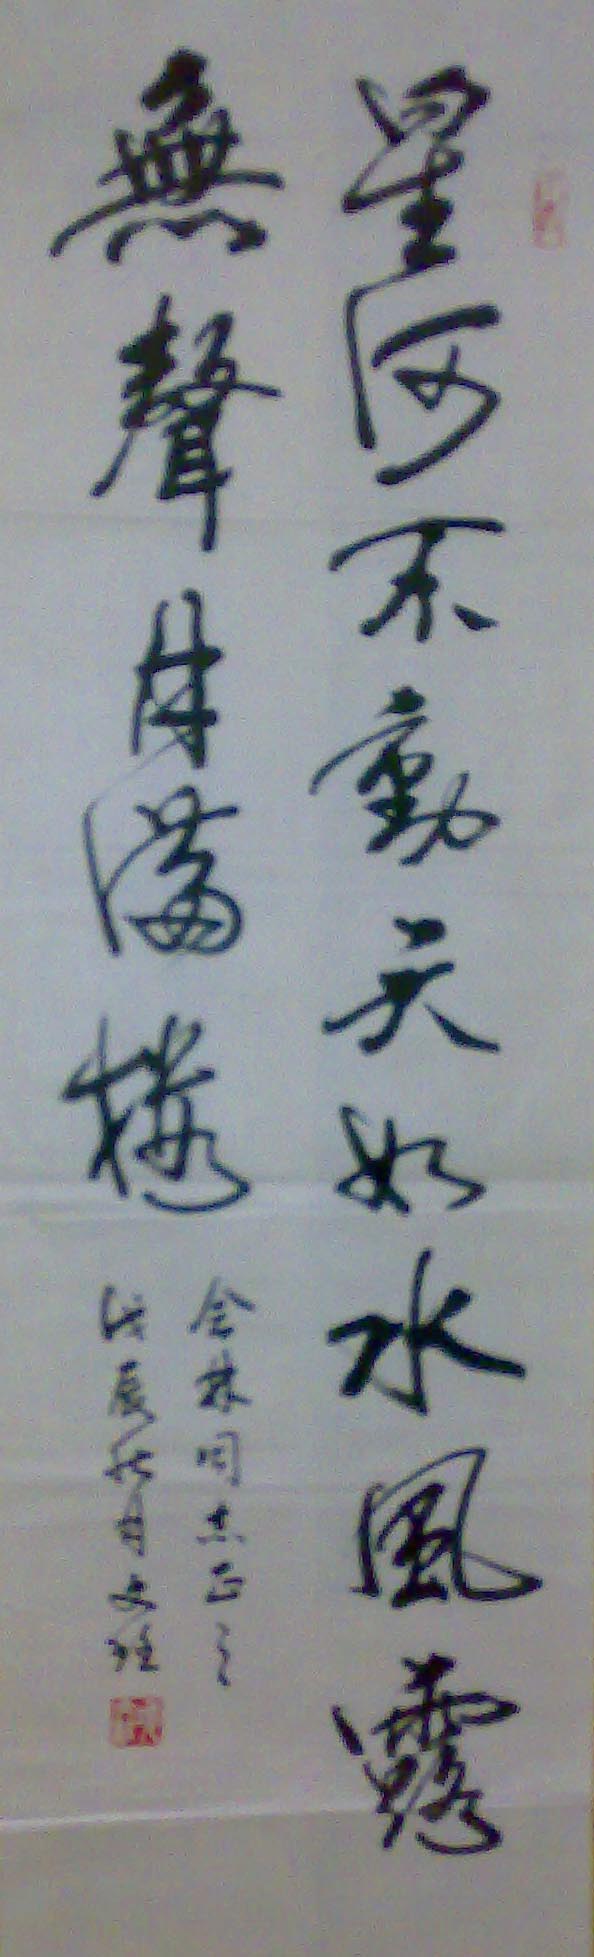 星河不動天如水風露
無聲月滿樓
金林同志正之
戊辰秋月文